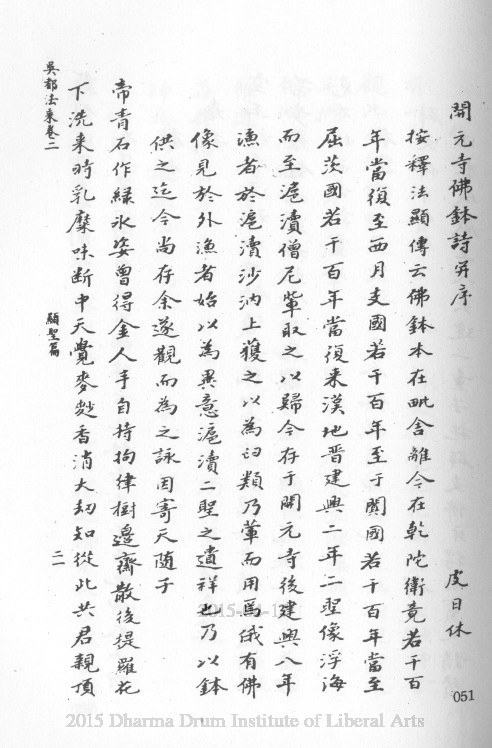 開元寺佛鉢詩并序 皮日休
按釋法顯傳云佛鉢本在毗舍離今在乾陀衛竟若干百
年當復至西月支國若干百年至于闐國若干百年當至
屈茨國若干百年當復来漢地晋建興二年二聖像浮海
而至滬瀆僧尼輩取之以歸今存于開元寺後建興八年
漁者於滬瀆沙汭上獲之以為臼類乃葷而用焉俄有佛
像見於外漁者始以為異意滬瀆二聖之遺祥也乃以鉢
供之迄今尚存余遂觀而為之詠因寄天随子
帝青石作緑氷姿曾得金人手自持拘律樹邊齋散後提羅花
下洗来時乳麋味断中天覺麥麨香消大刼知從此共君親頂
吳都法乘卷二 顯聖篇 二一
051
2015 Dharma Drum Institute of Liberal Arts